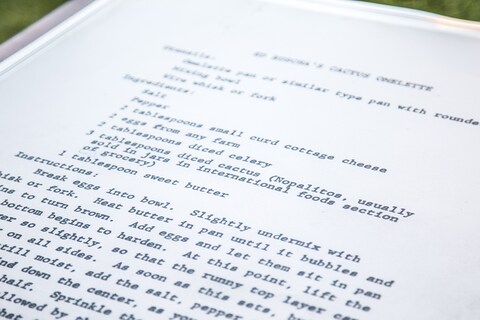 ED RUSCHA'S CACTUS OMELETTE
Utensils:
Omelette pan or similar type pan with rounde
Mixing bowl
Wire whisk or fork
Ingredients:
Salt
Pepper
2 tablespoons small curd cottage cheese
2 eggs from any farm
2 tablespoons diced celery
3 tablespoons diced cactus (Nopalitos, usually
sold in jars in international foods section
of grocery)
1 tablespoon sweet butter
Instructions:
Break eggs into bowl. Slightly undermix with
hisk or fork. Heat butter in pan until it bubbles and
ins to turn brown. Add eggs and let them sit in pan
bottom begins to harden. At this point, lift the
er so slightly, so that the runny top layer can
on all sides. As soon as this sets, but
till moist, add the salt, pepper,
nd down the center, as you
half. Sprinkle the
llowed by